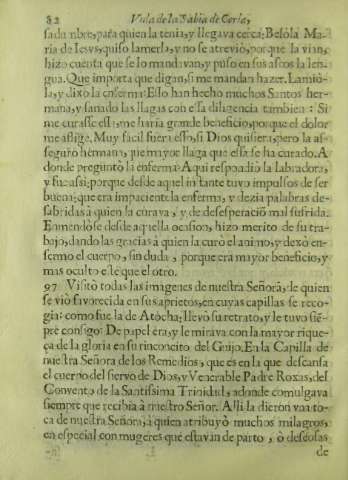 82 Vida de la Sabia de Coria,
sada nbre, para quien la tenia, y llegava cerca: Besòla Ma-
ria de Iesvs, quiso lamerla, y no se atreviò, porque la vian,
hizo cuenta que se lo mandavan, y puso en sus ascos la len-
gua. Que importa que digan, si me mandan hazer. Lamiò-
la, y dixo la enferma: Esso han hecho muchos Santos her-
mana, y sanado las llagas con essa diligencia tambien: Si
me curasse essa, me haria grande beneficio, porque el dolor
me aflige. Muy facil fuera esso, si Dios quisiera, pero la as-
seguro hermana, que mayor llaga que essa se ha curado. A
donde preguntò la enferma? Aqui respondiò la Labradora,
y fue assi: porque desde aquel instante tuvo impulsos de ser
buena; que era impaciente la enferma, y dezia palabras de-
sabridas à quien la curava, y de desesperaciõ mal sufrida.
Enmendòse desde aquella ocasion, hizo merito de su tra-
bajo, dando las gracias à quien la curò el animo, y dexò en-
fermo el cuerpo, sin duda, porque era mayor beneficio, y
mas oculto este que el otro.
97 Visitò todas las imagenes de nuestra Señora; de quien
se viò favorecida en sus aprietos, en cuyas capillas se reco-
gia: como fue la de Atòcha; llevò su retrato, y le tuvo siẽ-
pre consigo: De papel era, y le mirava con la mayor rique-
ça de la gloria en su rinconcito del Guijo. En la Capilla de
nuestra Señora de los Remedios, que es en la que descansa
el cuerpo del siervo de Dios, y Venerable Padre Roxas, del
Convento de la Santissima Trinidad, adonde comulgava
siempre que recibia à nuestro Señor. Alli la dieron vna to-
ca de nuestra Señora, à quien atribuyò muchos milagros,
en especial con mugeres que estavan de parto, ò deseosas
de